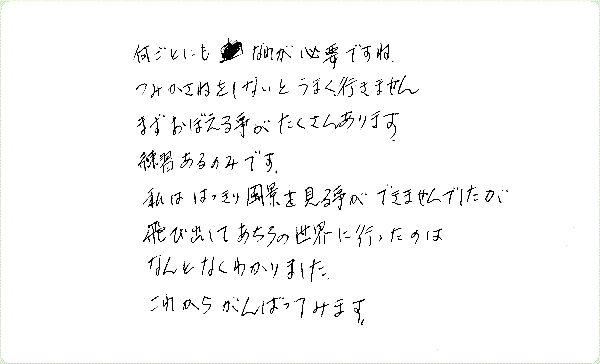 何ごとにも なれが必要ですね.
つみかさねをしないとうまく行きません
まずおぼえる事がたくさんあります.
練習あるのみです.
私ははっきり風景を見る事ができませんでしたが
飛び出してあちらの世界に行ったのは
なんとなくわかりました.
これからがんばってみます.